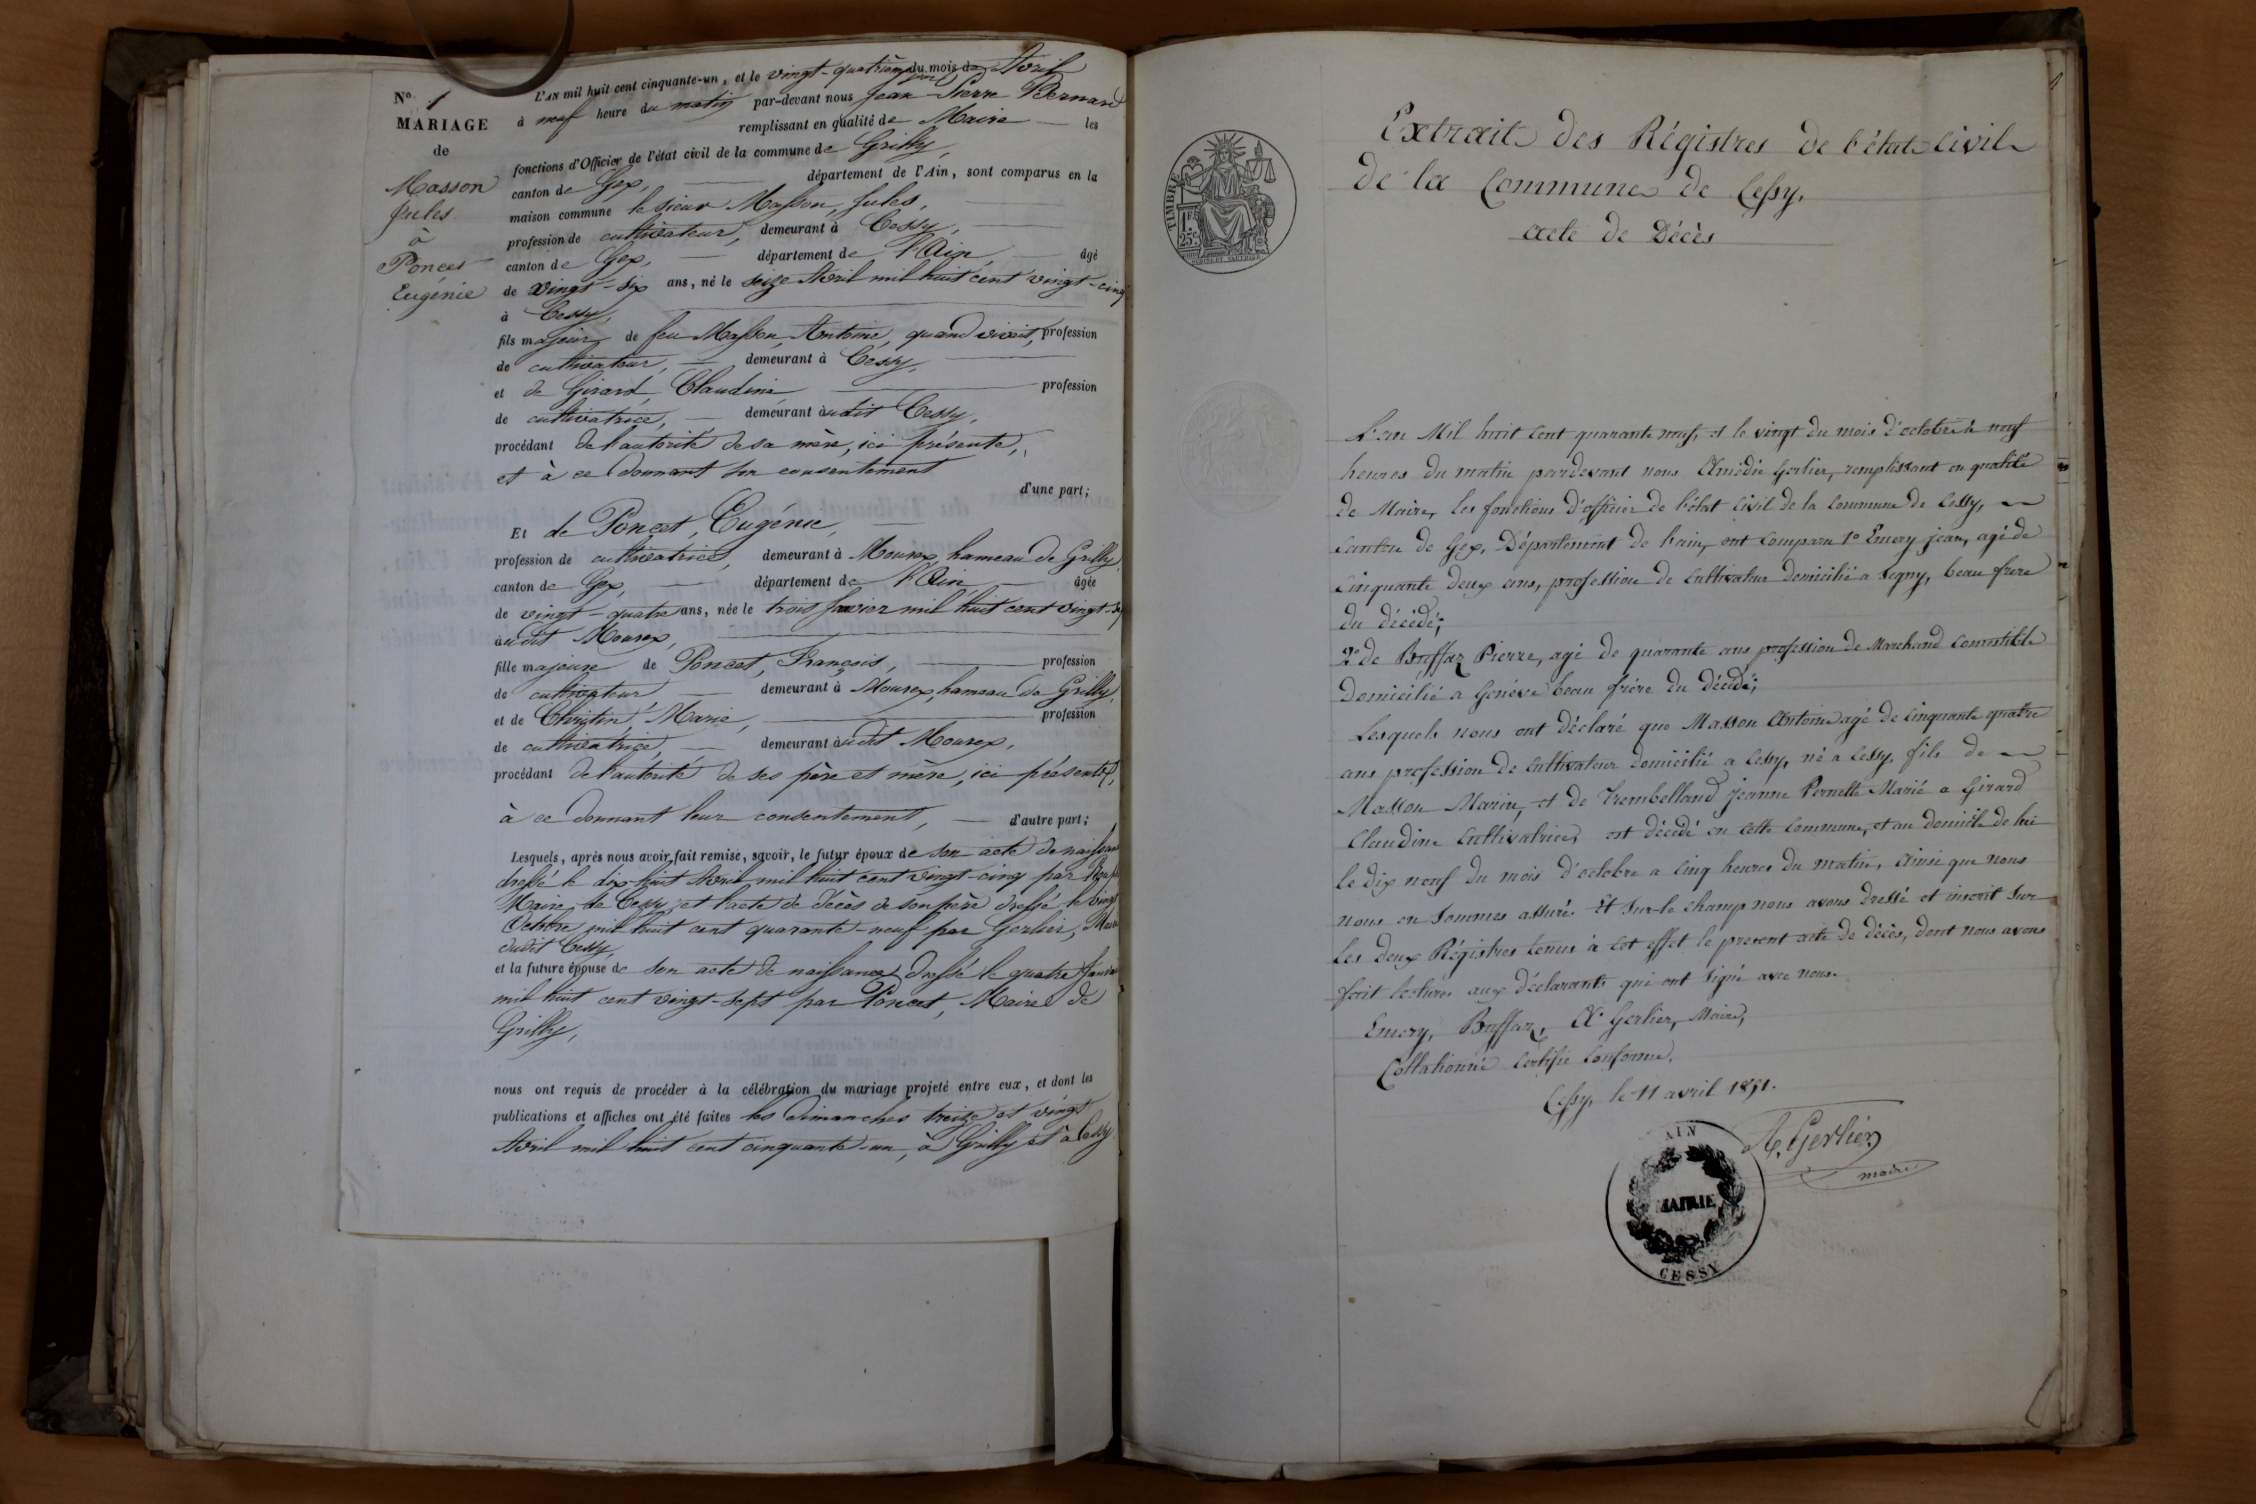 N° 1
MARIAGE
de
Masson
Jules
à
Poncet
Eugénie
L'AN mil huit cent cinquante-un, et le vingt-quatrième jour du mois de Avril
à neuf heure du matin par-devant nous Jean-Pierre Bernard
remplissant en qualité de Maire les
fonctions d'Officier de l'état civil de la commune de Grilly,
canton de Gex, département de l'Ain, sont comparus en la
maison commune le sieur Masson, Jules,
profession de cultivateur, demeurant à Cessy,
canton de Gex, département de l'Ain, âgé
de vingt-six ans, né le seize Avril mil huit cent vingt-cinq
à Cessy,
fils majeur de feu Masson, Antoine, quand vivait, profession
de cultivateur, demeurant à Cessy,
et de Girard, Claudine, profession
de cultivatrice, demeurant àudit Cessy,
procédant de l'autorité de sa mère, ici présente,
et à ce donnant son consentement
d'une part;
Et de Poncet, Eugénie,
profession de cultivatrice, demeurant à Mourex, hameau de Grilly,
canton de Gex, département de l'Ain, âgée
de vingt-quatre ans, née le trois Janvier mil huit cent vingt-sept
àudit Mourex,
fille majeure de Poncet, François, profession
de cultivateur demeurant à Mourex, hameau de Grilly,
et de Christin, Marie, profession
de cultivatrice, demeurant àudit Mourex,
procédant de l'autorité de ses père et mère, ici présents,
à ce donnant leur consentement, d'autre part;
Lesquels, après nous avoir fait remise, savoir, le futur époux de son acte de naissance
dressé le dix-huit Avril mil huit cent vingt-cinq par
Maire de Cessy, et l'acte de décès de son père dressé le vingt
Octobre mil huit cent quarante-neuf par Gerlier, Maire
dudit Cessy,
et la future épouse de son acte de naissance dressé le quatre Janvier
mil huit cent vingt-sept par Poncet, Maire de
Grilly,
nous ont requis de procéder à la célébration du mariage projeté entre eux, et dont les
publications et affiches ont été faites les dimanches treize et vingt
Avril mil huit cent cinquante-un, à Grilly et à Cessy
TIMBRE
1F.
25c.
Extrait des Régistres de l'état civil
de la Commune de Cessy.
acte de Décès
L'an Mil huit cent quarante neuf, et le vingt du mois d'octobre à neuf
heures du matin pardevant nous Amédée Gerlier, remplissant en qualité
de Maire, les fonctions d'officier de l'état civil de la commune de Cessy,
Canton de Gex, Département de l'ain, ont comparu 1° Emery jean, agé de
cinquante deux ans, profession de cultivateur domicilié a Segny, beau frere
du décédé;
2° de Buffaz Pierre, agé de quarante ans profession de Marchand Comestible
domicilié a Genève beau frère du décédé;
Lesquels nous ont déclaré que Masson Antoine agé de cinquante quatre
ans profession de cultivateur domicilié a Cessy, né a Cessy, fils de
Masson Marin, et de Trembelland Jeanne Pernette Marié a Girard
Claudine cultivatrice, est décédé en cette commune, et au domicile de lui
le dix neuf du mois d'octobre a cinq heures du matin, Ainsi que nous
nous en sommes assuré. Et sur-le champ nous avons dressé et inscrit sur
les deux Régistres tenus à cet effet le present acte de décès, dont nous avons
fait lecture aux déclarants qui ont signé avec nous.
Emery, Buffaz, A. Gerlier, Maire,
Collationné certifié conforme.
Cessy, le 11 avril 1851.
A. Gerlier
maire
AIN
MAIRIE
CESSY